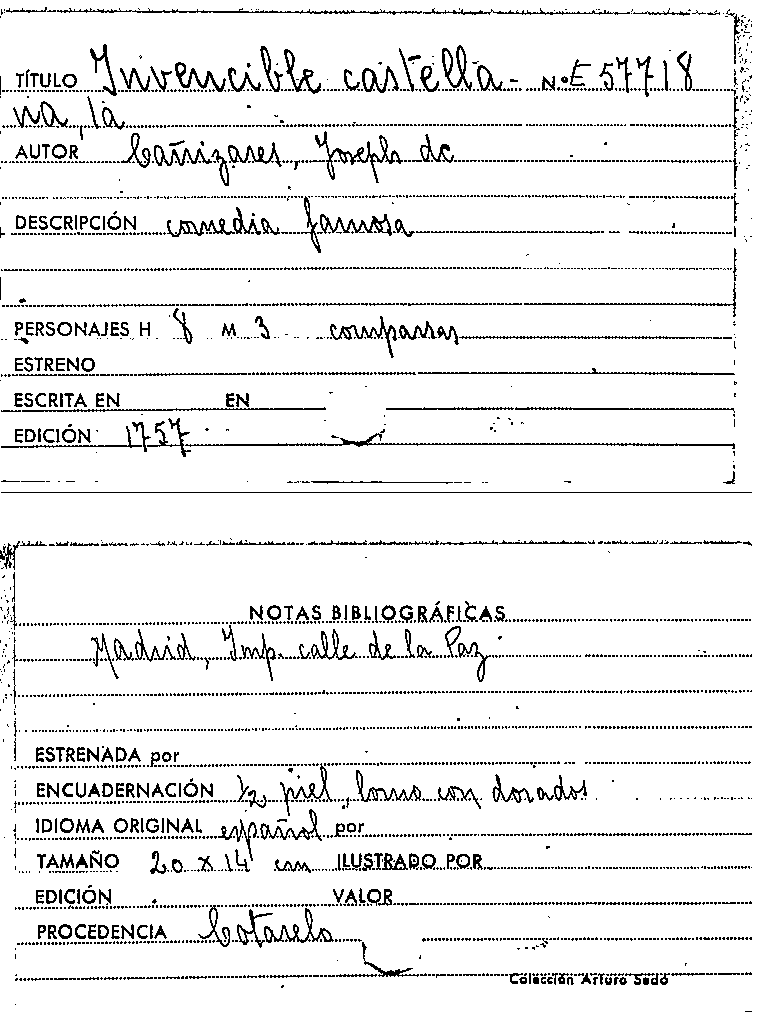 TÍTULO Invencible castella- N.ºE 57718
na, la
AUTOR Cañizares, Joseph de
DESCRIPCIÓN comedia famosa
PERSONAJES H 8 M 3 comparsas
ESTRENO
ESCRITA EN EN
EDICIÓN 1757
NOTAS BIBLIOGRÁFICAS
Madrid, Imp. calle de la Paz
ESTRENADA por
ENCUADERNACIÓN 1/2 piel, lomo con dorados
IDIOMA ORIGINAL español por
TAMAÑO 20 x 14 cm ILUSTRADO POR
EDICIÓN VALOR
PROCEDENCIA Cotarelo
Colección Arturo Sedó